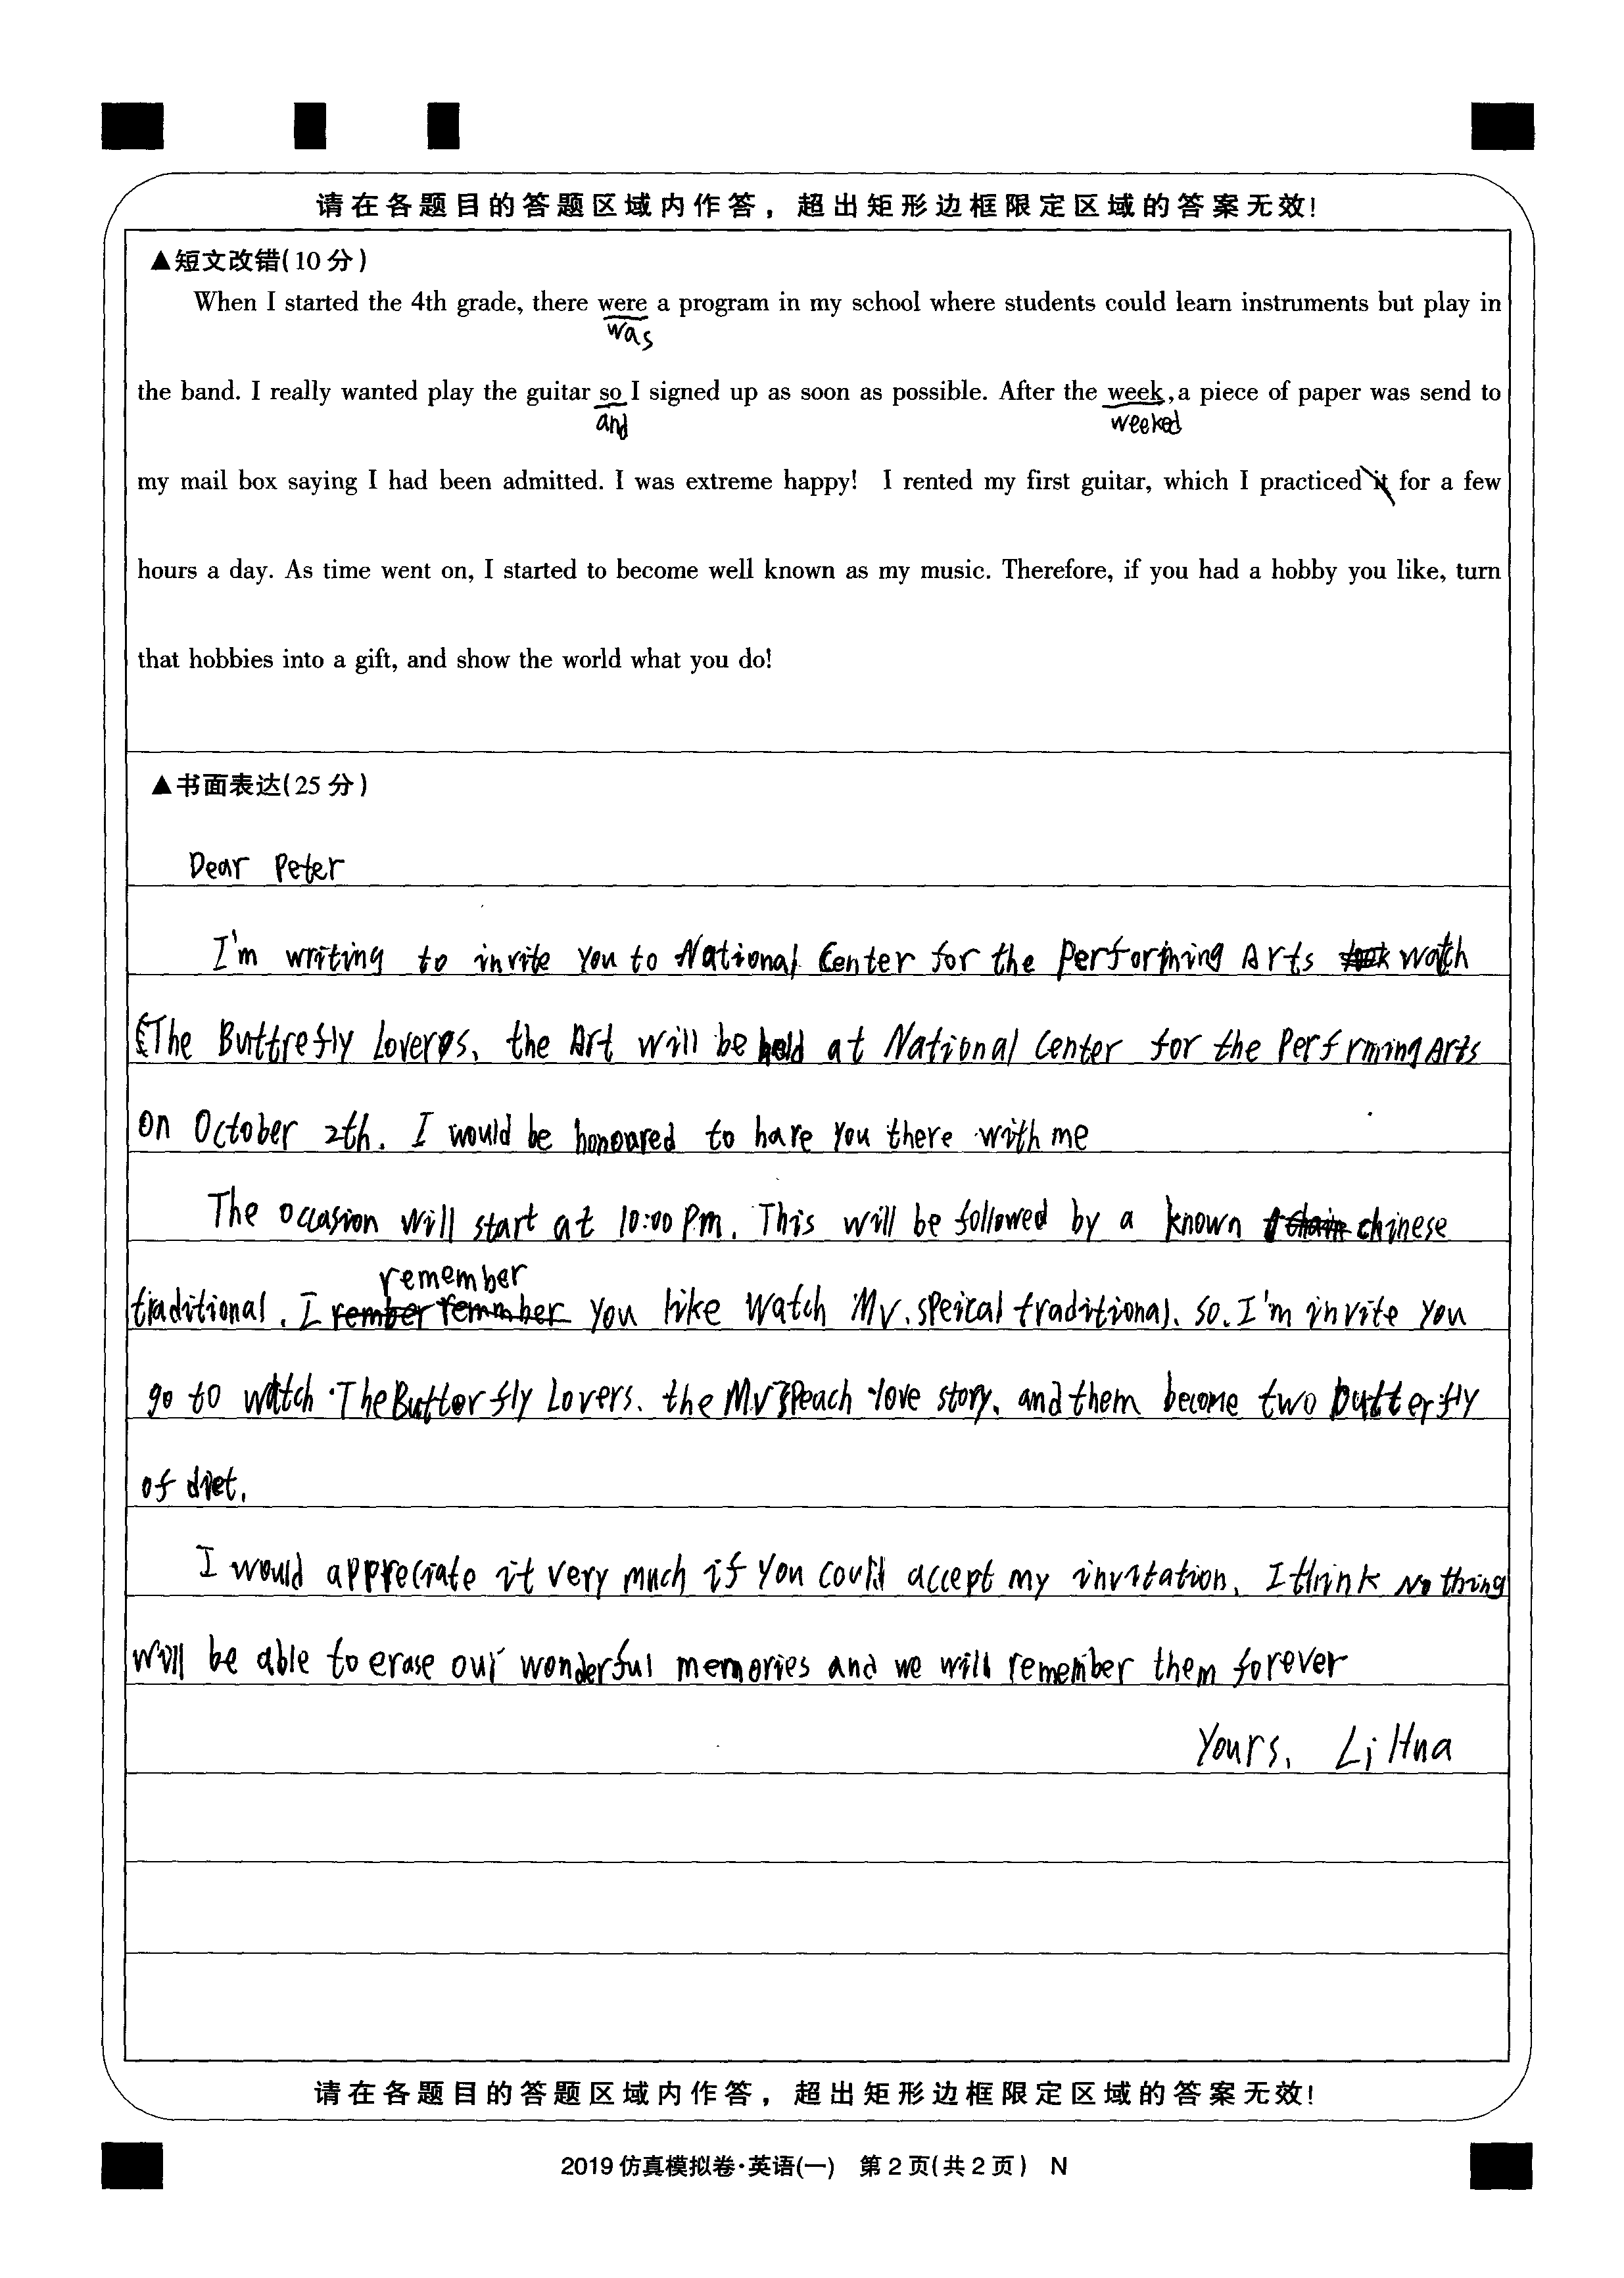 请在各题目的答题区域内作答，超出矩形边框限定区域的答案无效!
▲短文改错(10分)
When I started the 4th grade, there were a program in my school where students could learn instruments but play in
was
the band. I really wanted play the guitar so I signed up as soon as possible. After the week, a piece of paper was send to
and weeked
my mail box saying I had been admitted. I was extreme happy! I rented my first guitar, which I practiced it for a few
hours a day. As time went on, I started to become well known as my music. Therefore, if you had a hobby you like, turn
that hobbies into a gift, and show the world what you do!
▲书面表达(25分)
Dear Peter
I'm writing to invite you to National Center for the Performing Arts watch
《The Buttrefly Lovers. the Art will be held at National Center for the Perfrming Arts
on October 2th. I would be honoured to have you there with me
The occasion will start at 10:00 P.m. This will be followed by a known chinese
remember
traditional. I you like watch MV. speical traditional. so. I'm invite you
go to watch The Butterfly Lovers. the MV Peach love story. and them become two butterfly
of diet.
I would appreciate it very much if you could accept my invitation. I think Nothing
will be able to erase our wonderful memories and we will remember them forever
Yours. Li Hua
请在各题目的答题区域内作答，超出矩形边框限定区域的答案无效!
2019仿真模拟卷·英语(一) 第2页(共2页) N